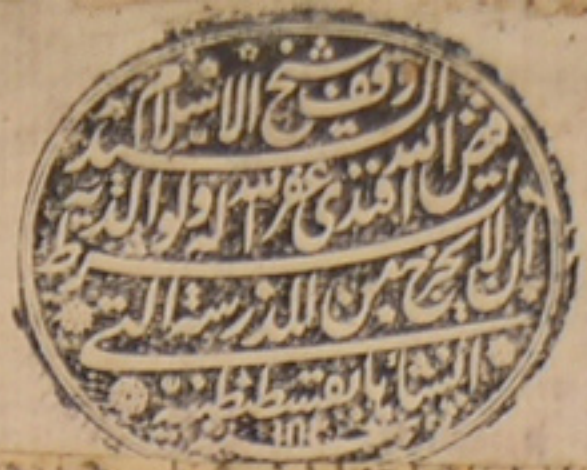 وقف شيخ الاسلام السيد
فيض الله افندى غفر الله له ولوالديه
بشرط ان لا يخرج من المدرسة التي
انشاها بقسطنطنيه